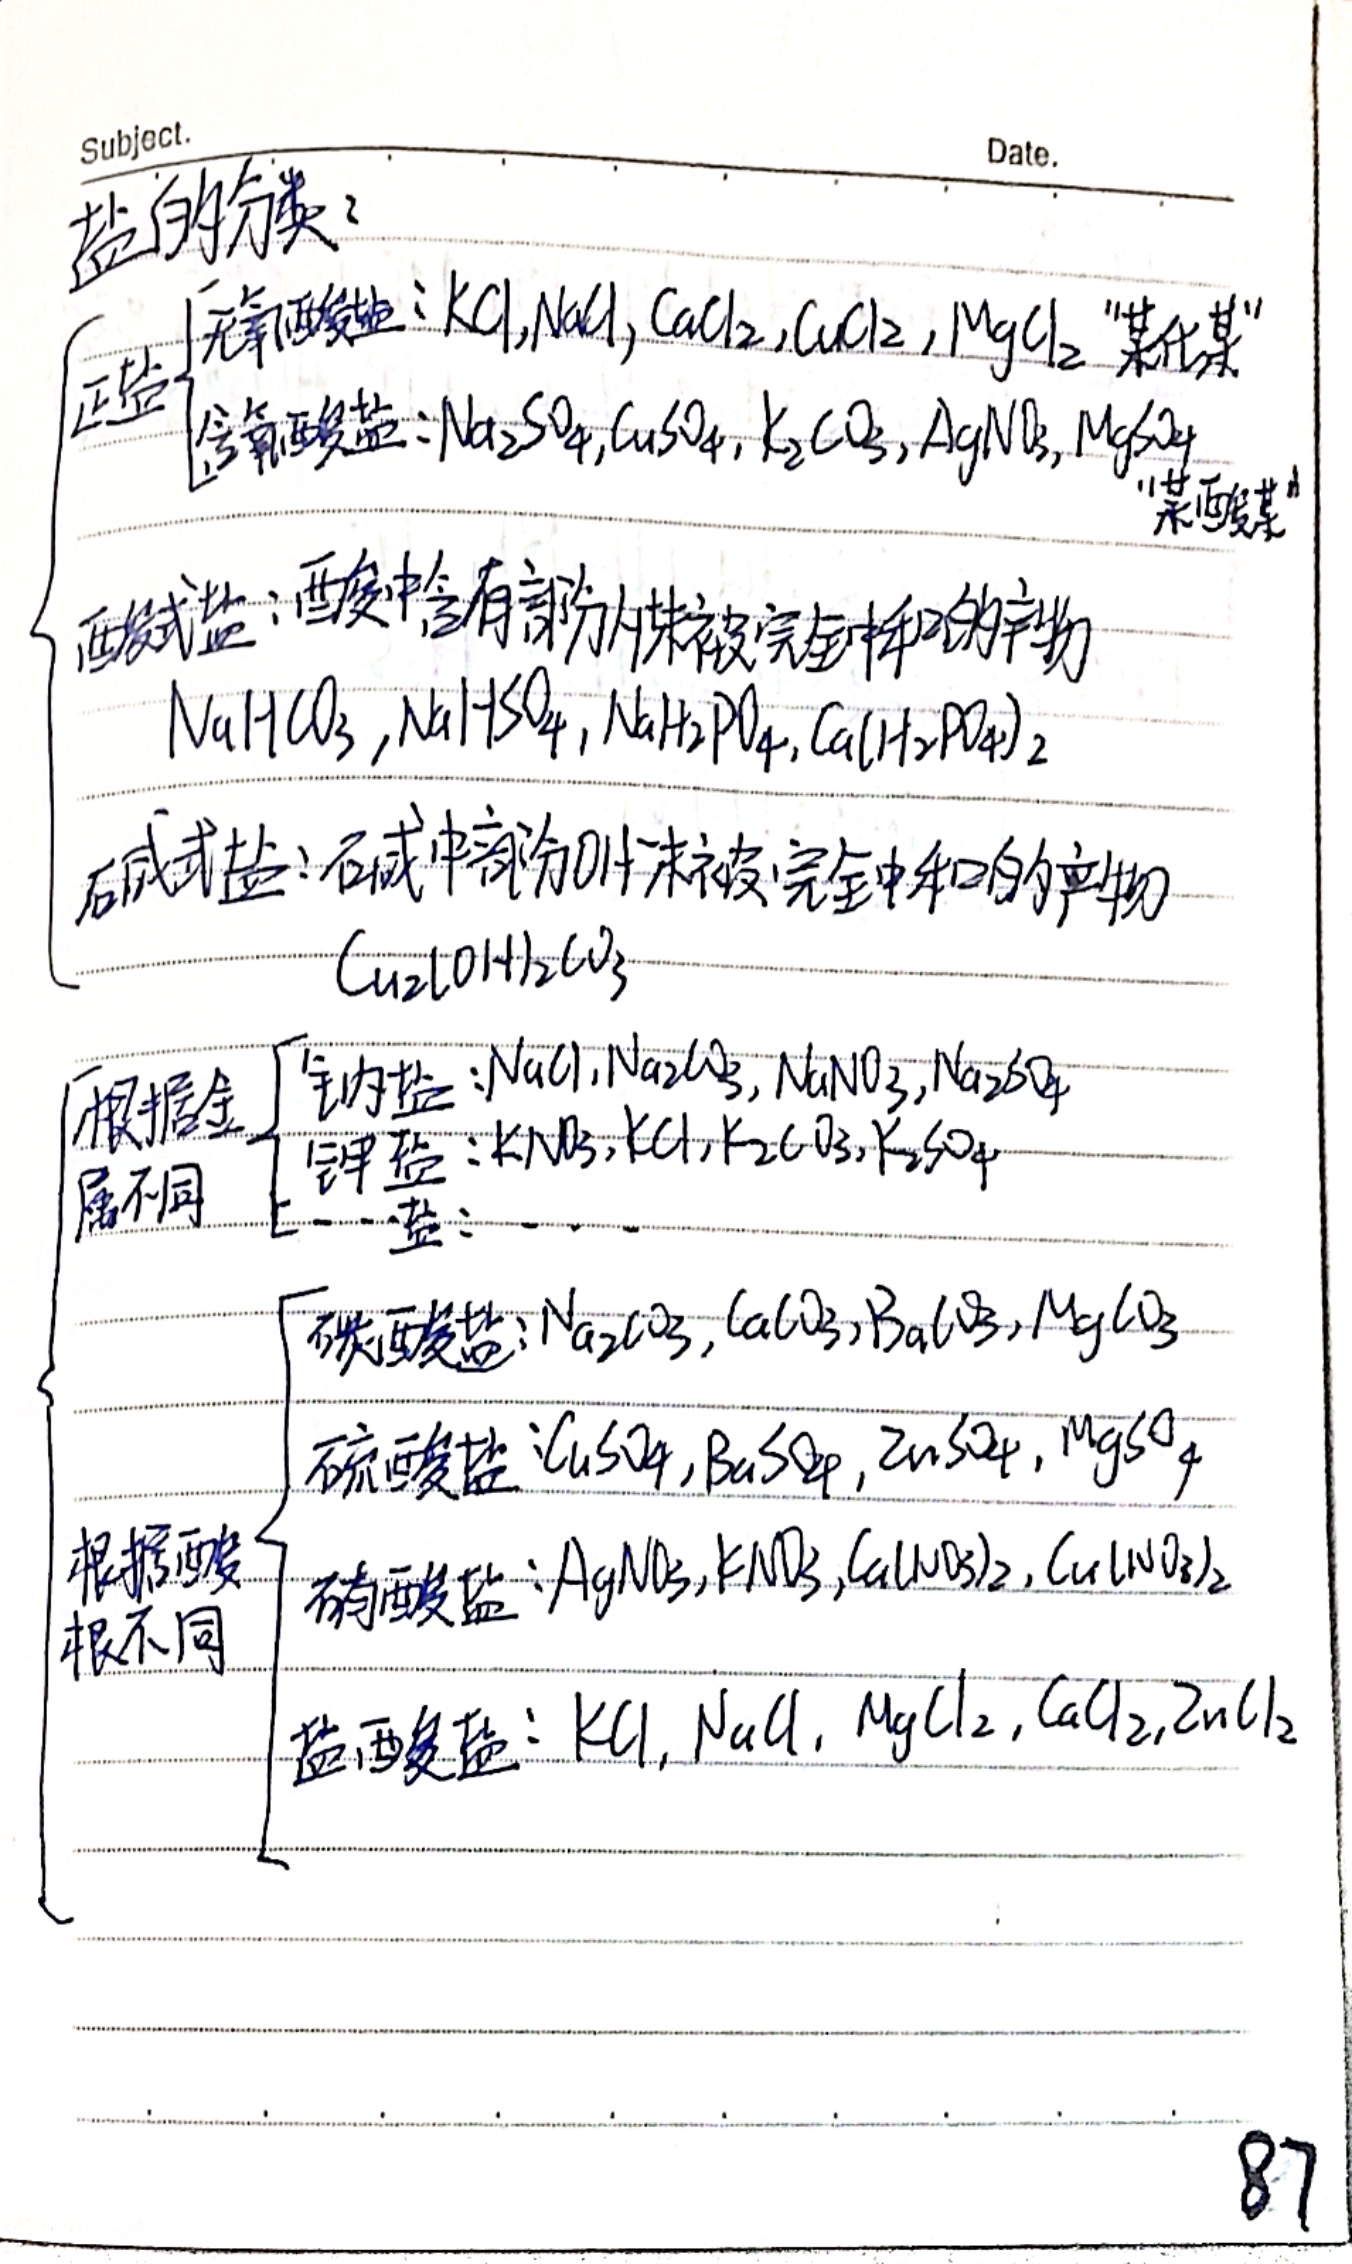 Subject.
Date.
盐的分类:
正盐
无氧酸盐:KCl,NaCl,CaCl2,CuCl2,MgCl2 "某化某"
含氧酸盐:Na2SO4,CuSO4,K2CO3,AgNO3,MgSO4
"某酸某"
酸式盐:酸中含有部分H未被完全中和的产物
NaHCO3,NaHSO4,NaH2PO4,Ca(H2PO4)2
碱式盐:碱中部分OH⁻未被完全中和的产物
Cu2(OH)2CO3
根据金
属不同
钠盐:NaCl,Na2CO3,NaNO3,Na2SO4
钾盐:KNO3,KCl,K2CO3,K2SO4
---盐:---
碳酸盐:Na2CO3,CaCO3,BaCO3,MgCO3
硫酸盐:CuSO4,BaSO4,ZnSO4,MgSO4
根据酸
根不同
硝酸盐:AgNO3,KNO3,Ca(NO3)2,Cu(NO3)2
盐酸盐:KCl,NaCl,MgCl2,CaCl2,ZnCl2
87